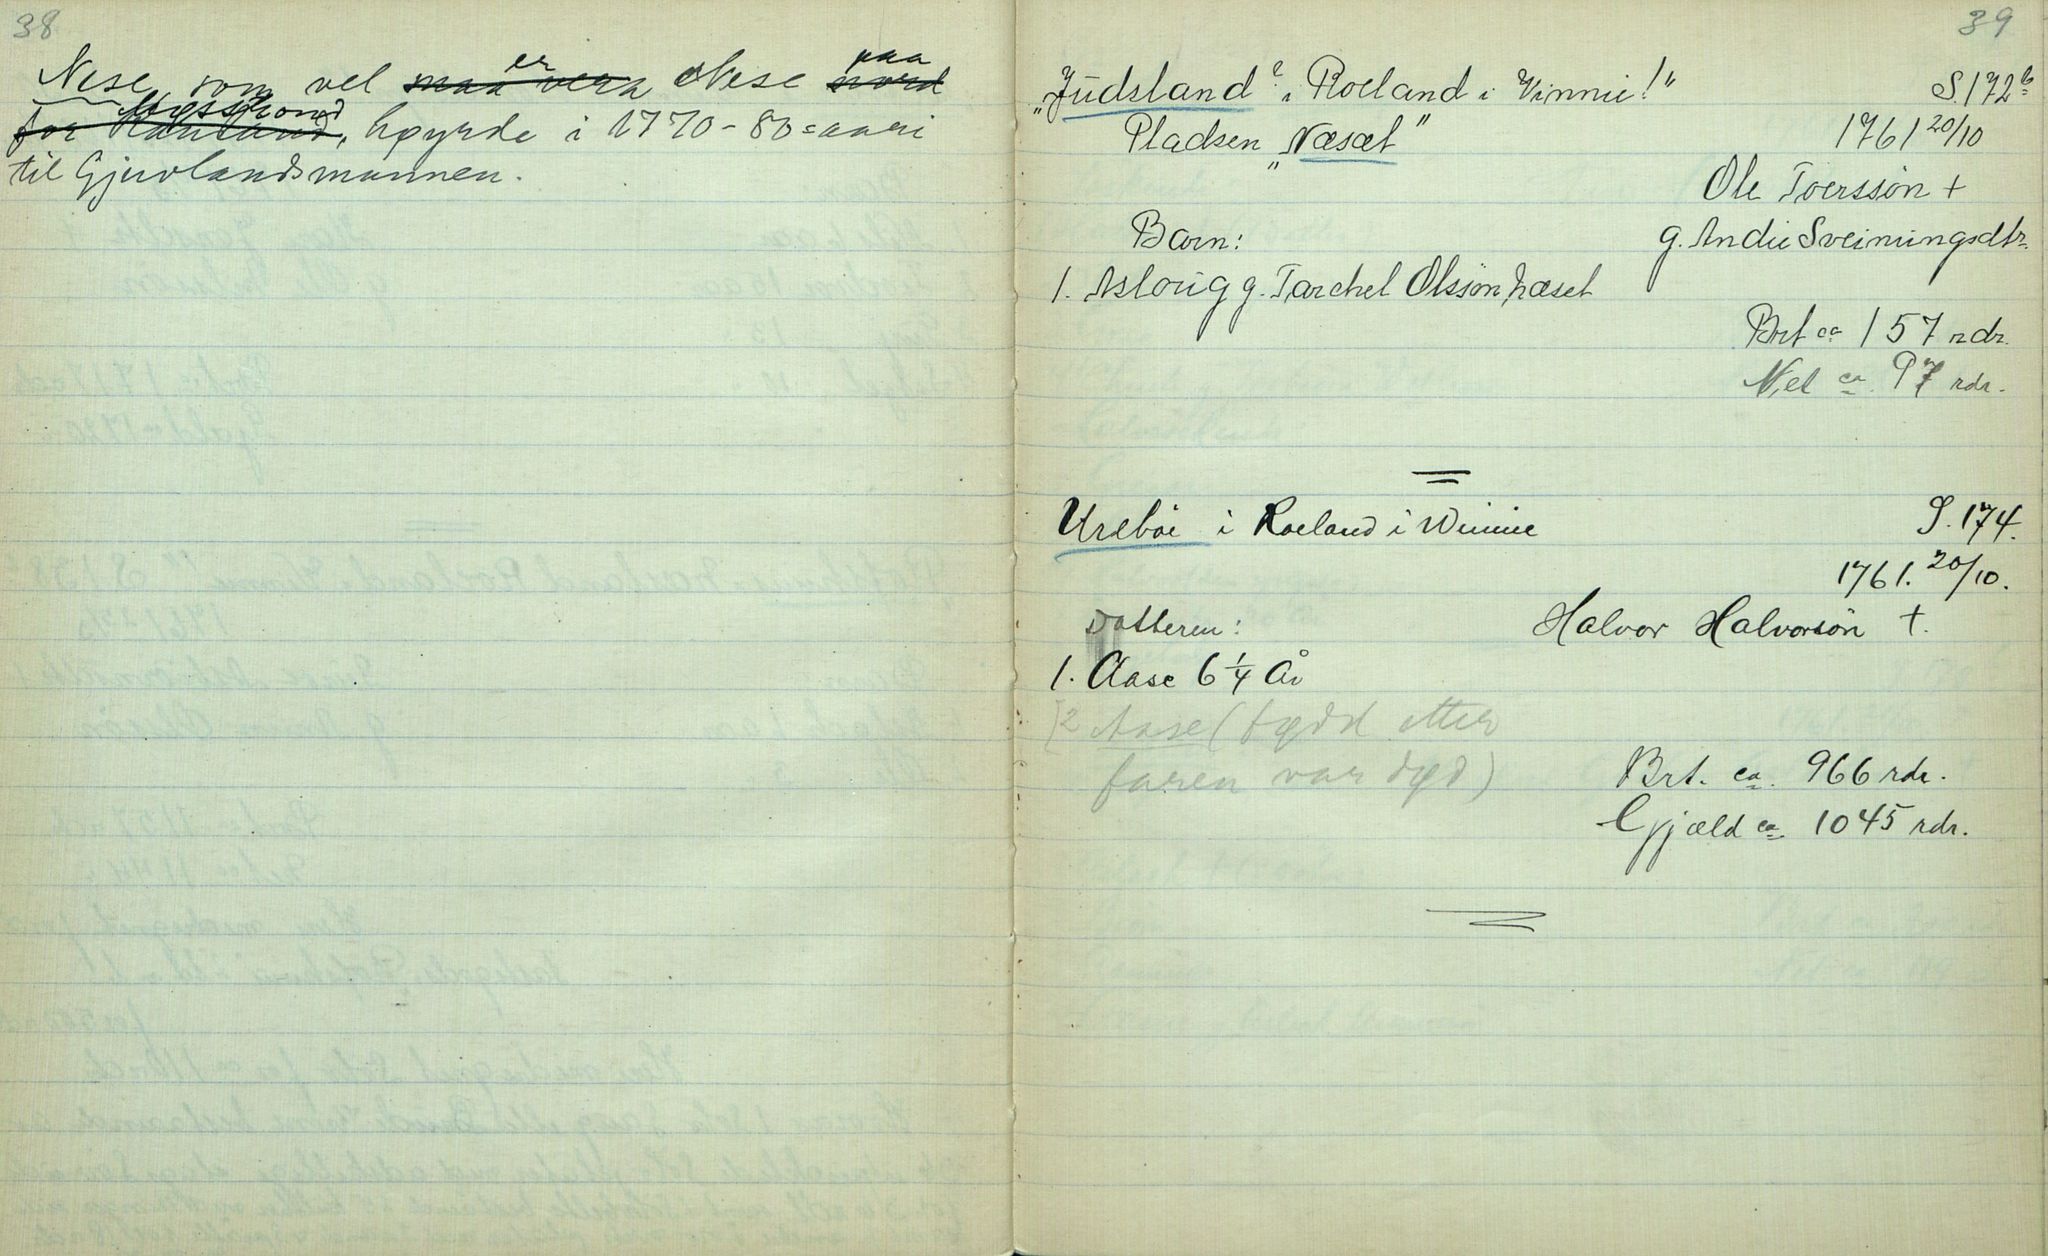 38
Nese, som vel ~~maa vera~~ er Nese ~~nord~~ paa
~~for Rauland~~ Møsstrond, høyrde i 1770-80-aari
til Gjuvlandsmannen.
39
"Judsland? i Roeland i Vinnie!" S.172b
Pladsen "Næsæt" 1761 20/10
Ole Toerssøn +
Barn: g. Andie Sveinungsdtr.
1. Asloug g. Tarchel Olssøn Næset
Brt ca 157 rdr.
Net ca. 97 rdr.
Urebøe i Roeland i Winnie S.174.
1761. 20/10.
Datteren: Halvor Halvorsøn +.
1. Aase 6 1/4 År
[2 Aase (fødd etter
faren var død)
Brt. ca. 966 rdr.
Gjæld ca. 1045 rdr.